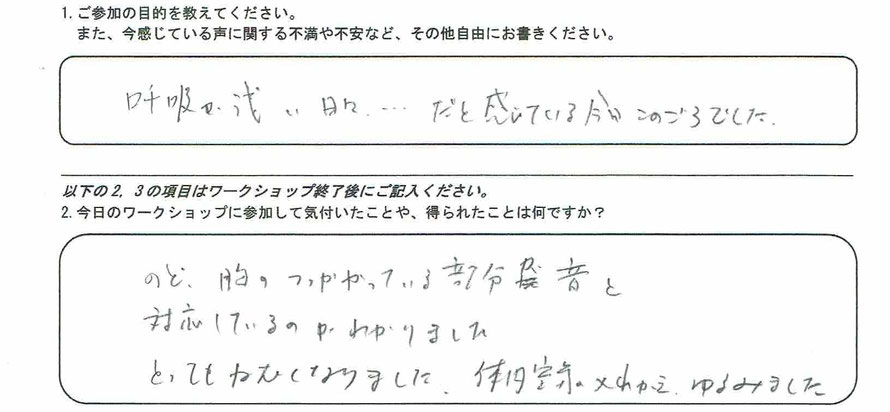 1. ご参加の目的を教えてください。
また、今感じている声に関する不満や不安など、その他自由にお書きください。
呼吸が浅い日々…だと感じている今日このごろでした。
以下の2, 3の項目はワークショップ終了後にご記入ください。
2. 今日のワークショップに参加して気付いたことや、得られたことは何ですか?
のど、胸のつっかかっている部分発音と
対応しているのがわかりました
とってもねむくなりました、体内ゆるみました